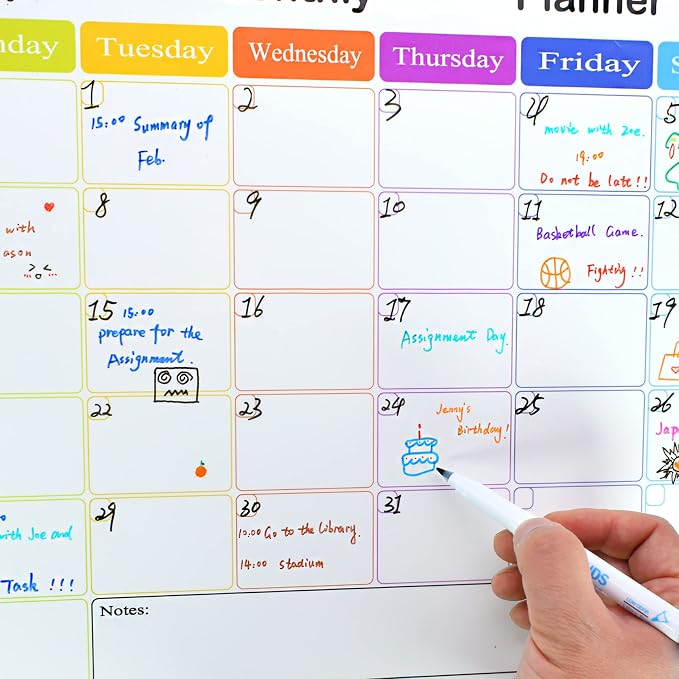 Planner
Tuesday
Wednesday
Thursday
Friday
1
15:00 Summary of
Feb.
2
3
4
movie with Zoe.
19:00
Do not be late!!
5
with
8
9
10
11
Basketball Game.
Fighting!!
12
15 15:00
prepare for the
Assignment.
16
17
Assignment Day.
18
19
22
23
24
Jenny's
Birthday!
25
26
with Joe and
Task !!!
29
30
10:00 Go to the library.
14:00 stadium
31
Notes: